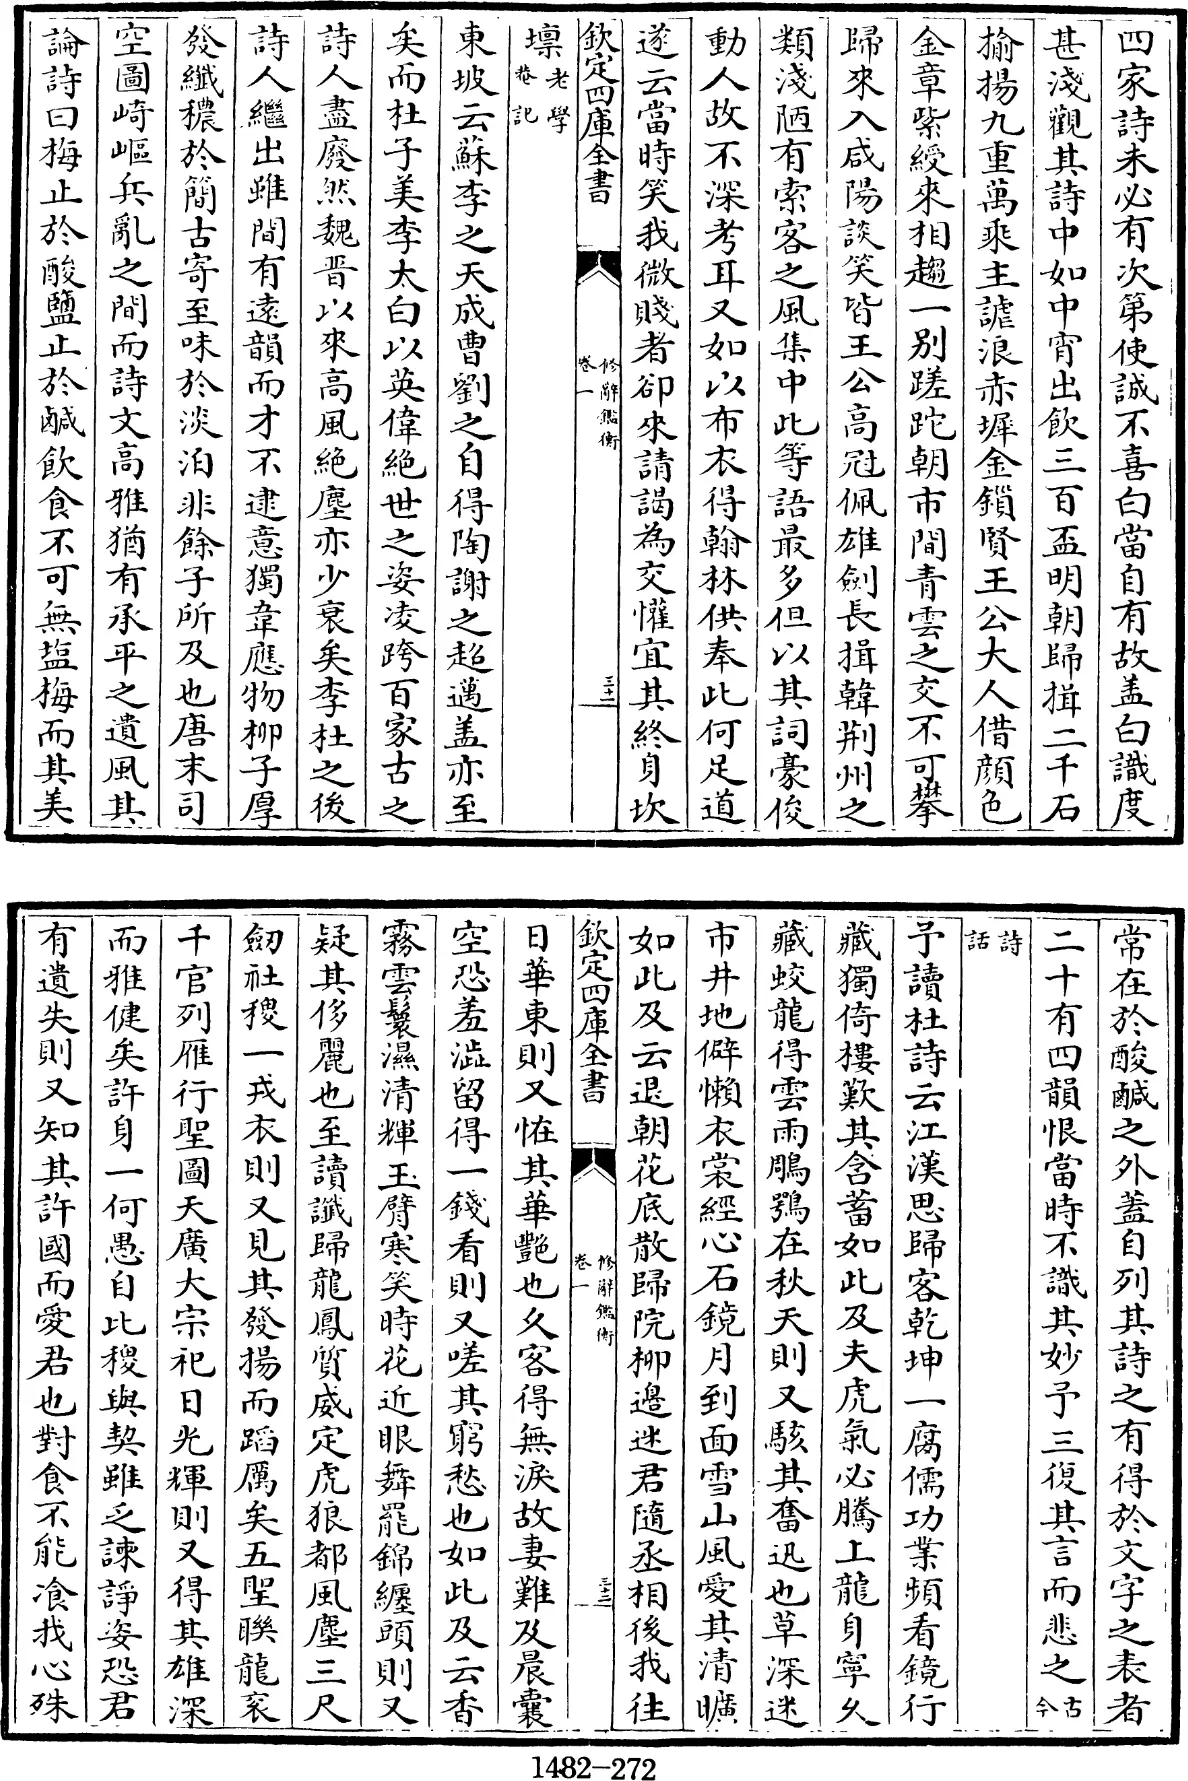 四家詩未必有次第使誠不喜白當自有故盖白識度
甚淺觀其詩中如中宵出飲三百盃明朝歸揖二千石
揄揚九重萬乘主謔浪赤墀金鎖賢王公大人借顔色
金章紫綬來相趨一别蹉跎朝市間青雲之交不可攀
歸來入咸陽談笑皆王公高冠佩雄劍長揖韓荆州之
類淺陋有索客之風集中此等語最多但以其詞豪俊
動人故不深考耳又如以布衣得翰林供奉此何足道
遂云當時笑我微賤者卻來請謁為交懽宜其終身坎
欽定四庫全書
修辭鑑衡
卷一
三十二
壈老學
菴記
東坡云蘇李之天成曹劉之自得陶謝之超邁盖亦至
矣而杜子美李太白以英偉絶世之姿凌跨百家古之
詩人盡廢然魏晋以來高風絶塵亦少衰矣李杜之後
詩人繼出雖間有遠韻而才不逮意獨韋應物柳子厚
發纖穠於簡古寄至味於淡泊非餘子所及也唐末司
空圖崎嶇兵亂之間而詩文高雅猶有承平之遺風其
論詩曰梅止於酸鹽止於鹹飲食不可無塩梅而其美
常在於酸鹹之外蓋自列其詩之有得於文字之表者
二十有四韻恨當時不識其妙予三復其言而悲之古
今
詩
話
予讀杜詩云江漢思歸客乾坤一腐儒功業頻看鏡行
藏獨倚樓歎其含蓄如此及夫虎氣必騰上龍身寧久
藏蛟龍得雲雨鵰鶚在秋天則又駭其奮迅也草深迷
市井地僻懶衣裳經心石鏡月到面雪山風愛其清曠
如此及云退朝花底散歸院柳邊迷君隨丞相後我往
欽定四庫全書
修辭鑑衡
卷一
三十三
日華東則又恠其華艷也久客得無淚故妻難及晨囊
空恐羞澁留得一錢看則又嗟其窮愁也如此及云香
霧雲鬟濕清輝玉臂寒笑時花近眼舞罷錦纏頭則又
疑其侈麗也至讀讖歸龍鳳質威定虎狼都風塵三尺
劒社稷一戎衣則又見其發揚而蹈厲矣五聖聯龍衮
千官列雁行聖圖天廣大宗祀日光輝則又得其雄深
而雅健矣許身一何愚自比稷與契雖乏諫諍姿恐君
有遺失則又知其許國而愛君也對食不能飡我心殊
1482-272